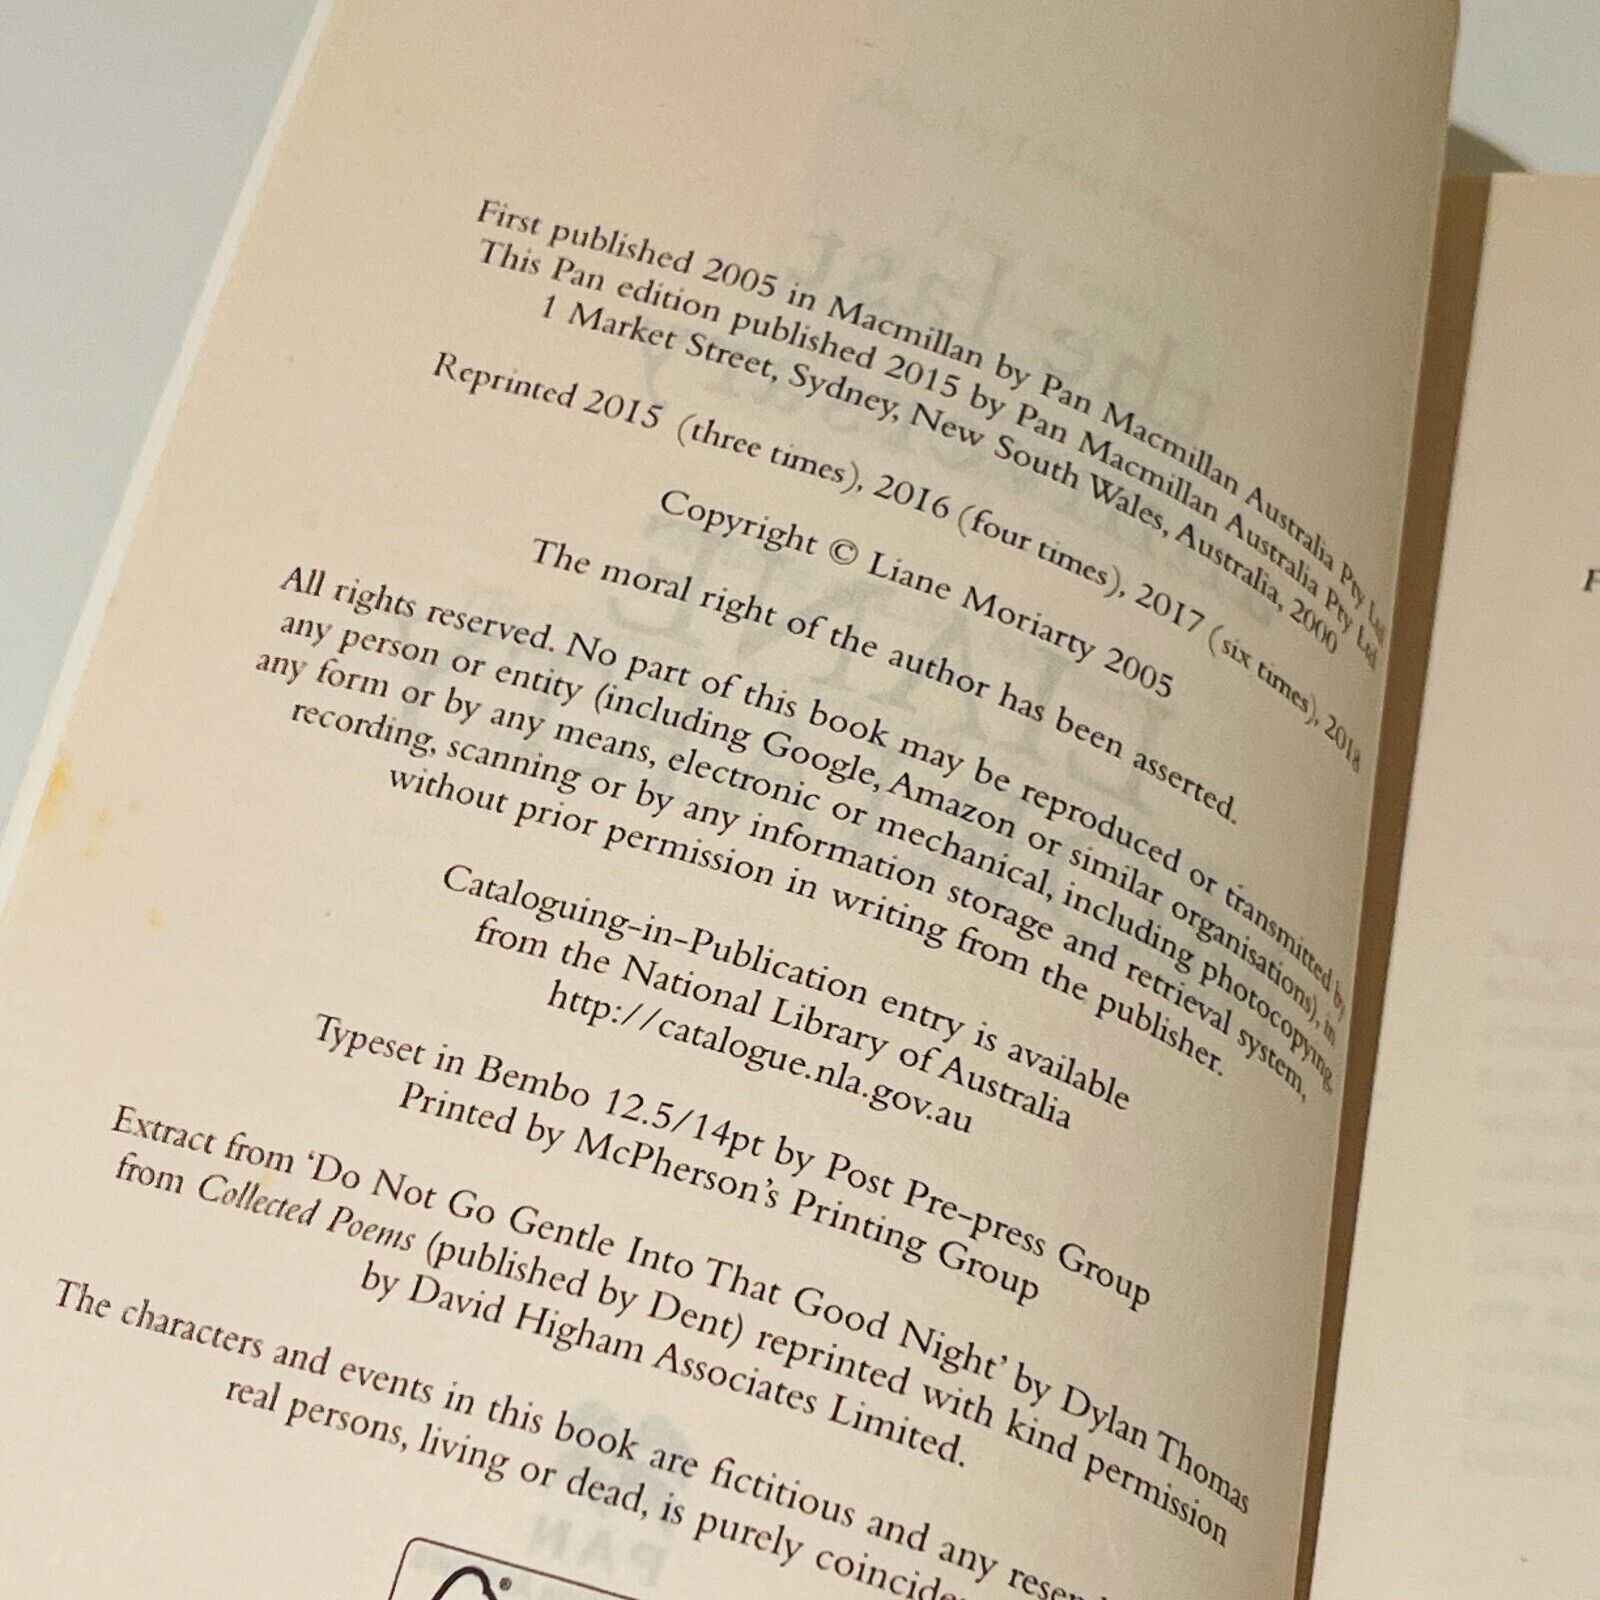 First published 2005 in Macmillan by Pan Macmillan Australia Pty Ltd
This Pan edition published 2015 by Pan Macmillan Australia Pty Ltd
1 Market Street, Sydney, New South Wales, Australia, 2000
Reprinted 2015 (three times), 2016 (four times), 2017 (six times), 2018
Copyright © Liane Moriarty 2005
The moral right of the author has been asserted.
All rights reserved. No part of this book may be reproduced or transmitted by
any person or entity (including Google, Amazon or similar organisations), in
any form or by any means, electronic or mechanical, including photocopying,
recording, scanning or by any information storage and retrieval system,
without prior permission in writing from the publisher.
Cataloguing-in-Publication entry is available
from the National Library of Australia
http://catalogue.nla.gov.au
Typeset in Bembo 12.5/14pt by Post Pre-press Group
Printed by McPherson's Printing Group
Extract from 'Do Not Go Gentle Into That Good Night' by Dylan Thomas
from Collected Poems (published by Dent) reprinted with kind permission
by David Higham Associates Limited.
The characters and events in this book are fictitious and any
real persons, living or dead, is purely